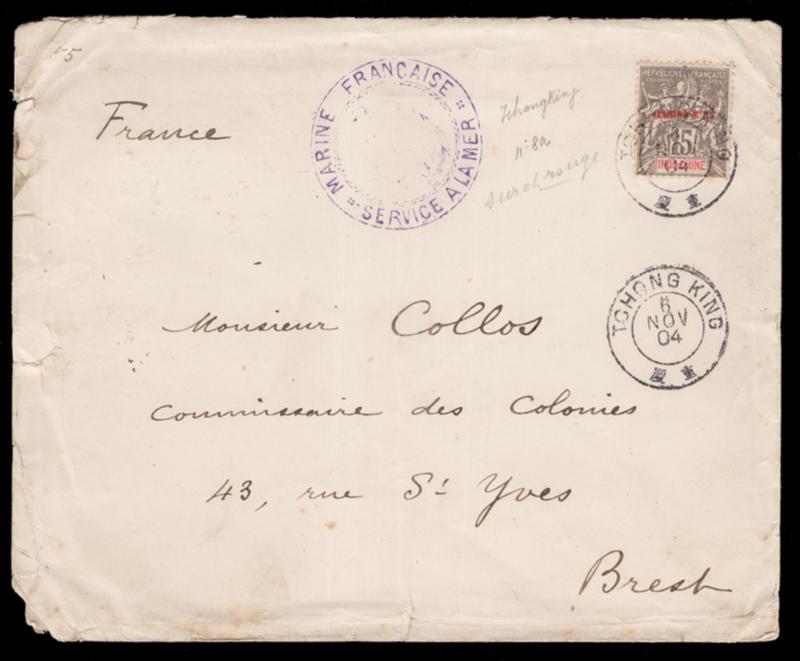 55
France
MARINE FRANÇAISE
SERVICE A LA MER
Tchongking
n° 8a
surch rouge
REPUBLIQUE FRANÇAISE
15
INDO-CHINE
04
慶 重
TCHONG KING
6
NOV
04
慶 重
Monsieur Collos
Commissaire des Colonies
43, rue St Yves
Brest